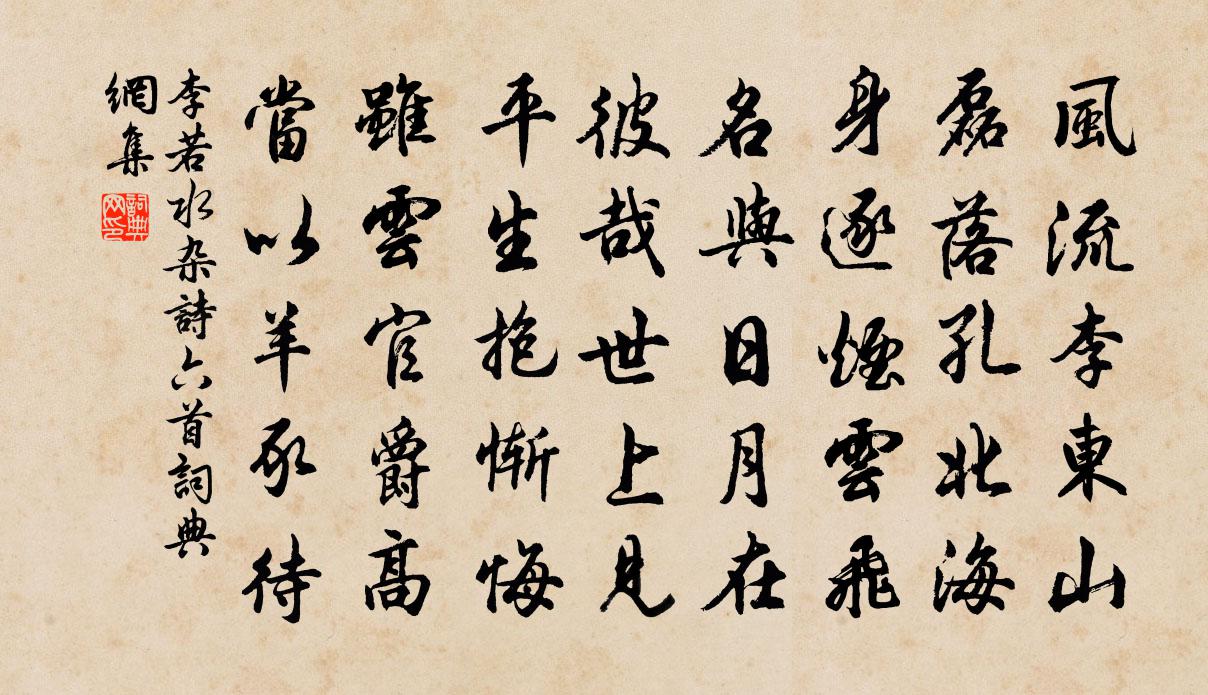 風流李東山
磊落孔北海
身逐煙雲飛
名與日月在
彼哉世上兒
平生抱慚悔
雖雲官爵高
當以羊豕待
李若水杂詩六首詞典
網集
詞典
网印